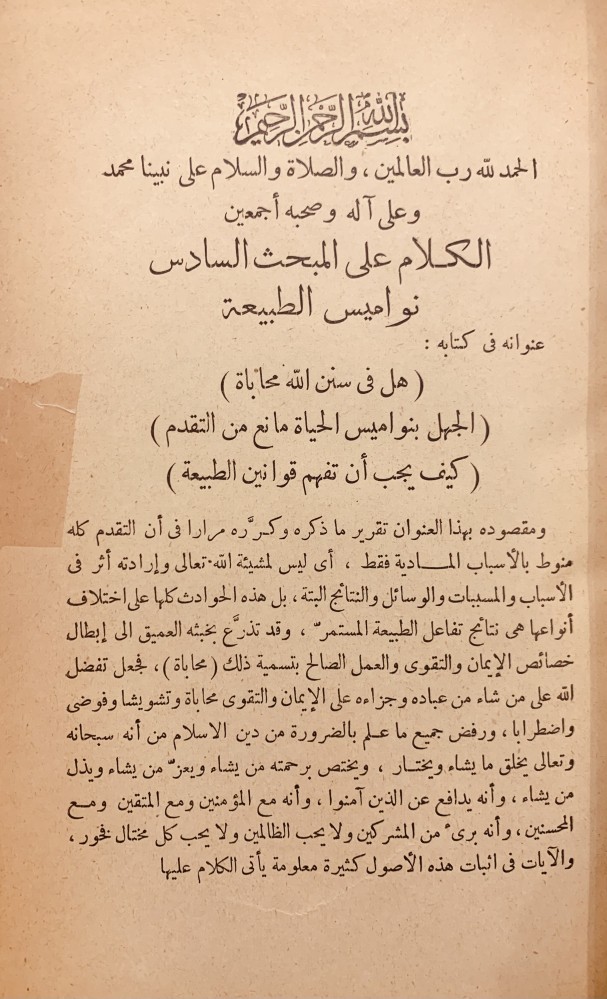 بسم الله الرحمن الرحيم
الحمد لله رب العالمين ، والصلاة والسلام على نبينا محمد
وعلى آله وصحبه أجمعين
الكلام على المبحث السادس
نواميس الطبيعة
عنوانه فى كتابه :
( هل فى سنن الله محاباة )
( الجهل بنواميس الحياة مانع من التقدم )
( كيف يجب أن تفهم قوانين الطبيعة )
ومقصوده بهذا العنوان تقرير ما ذكره وكرَّره مرارا فى أن التقدم كله
منوط بالأسباب المادية فقط ، أى ليس لمشيئة الله تعالى وإرادته أثر فى
الأسباب والمسببات والوسائل والنتائج البتة ، بل هذه الحوادث كلها على اختلاف
أنواعها هى نتائج تفاعل الطبيعة المستمرّ ، وقد تذرَّع بخبثه العميق الى إبطال
خصائص الإيمان والتقوى والعمل الصالح بتسمية ذلك ( محاباة ) ، فجعل تفضل
الله على من شاء من عباده وجزاءه على الإيمان والتقوى محاباة وتشويشا وفوضى
واضطرابا ، ورفض جميع ما علم بالضرورة من دين الاسلام من أنه سبحانه
وتعالى يخلق ما يشاء ويختار ، ويختص برحمته من يشاء ويعزّ من يشاء ويذل
من يشاء ، وأنه يدافع عن الذين آمنوا ، وأنه مع المؤمنين ومع المتقين ومع
المحسنين ، وأنه برىء من المشركين ولا يحب الظالمين ولا يحب كل مختال فخور ،
والآيات فى اثبات هذه الأصول كثيرة معلومة يأتى الكلام عليها